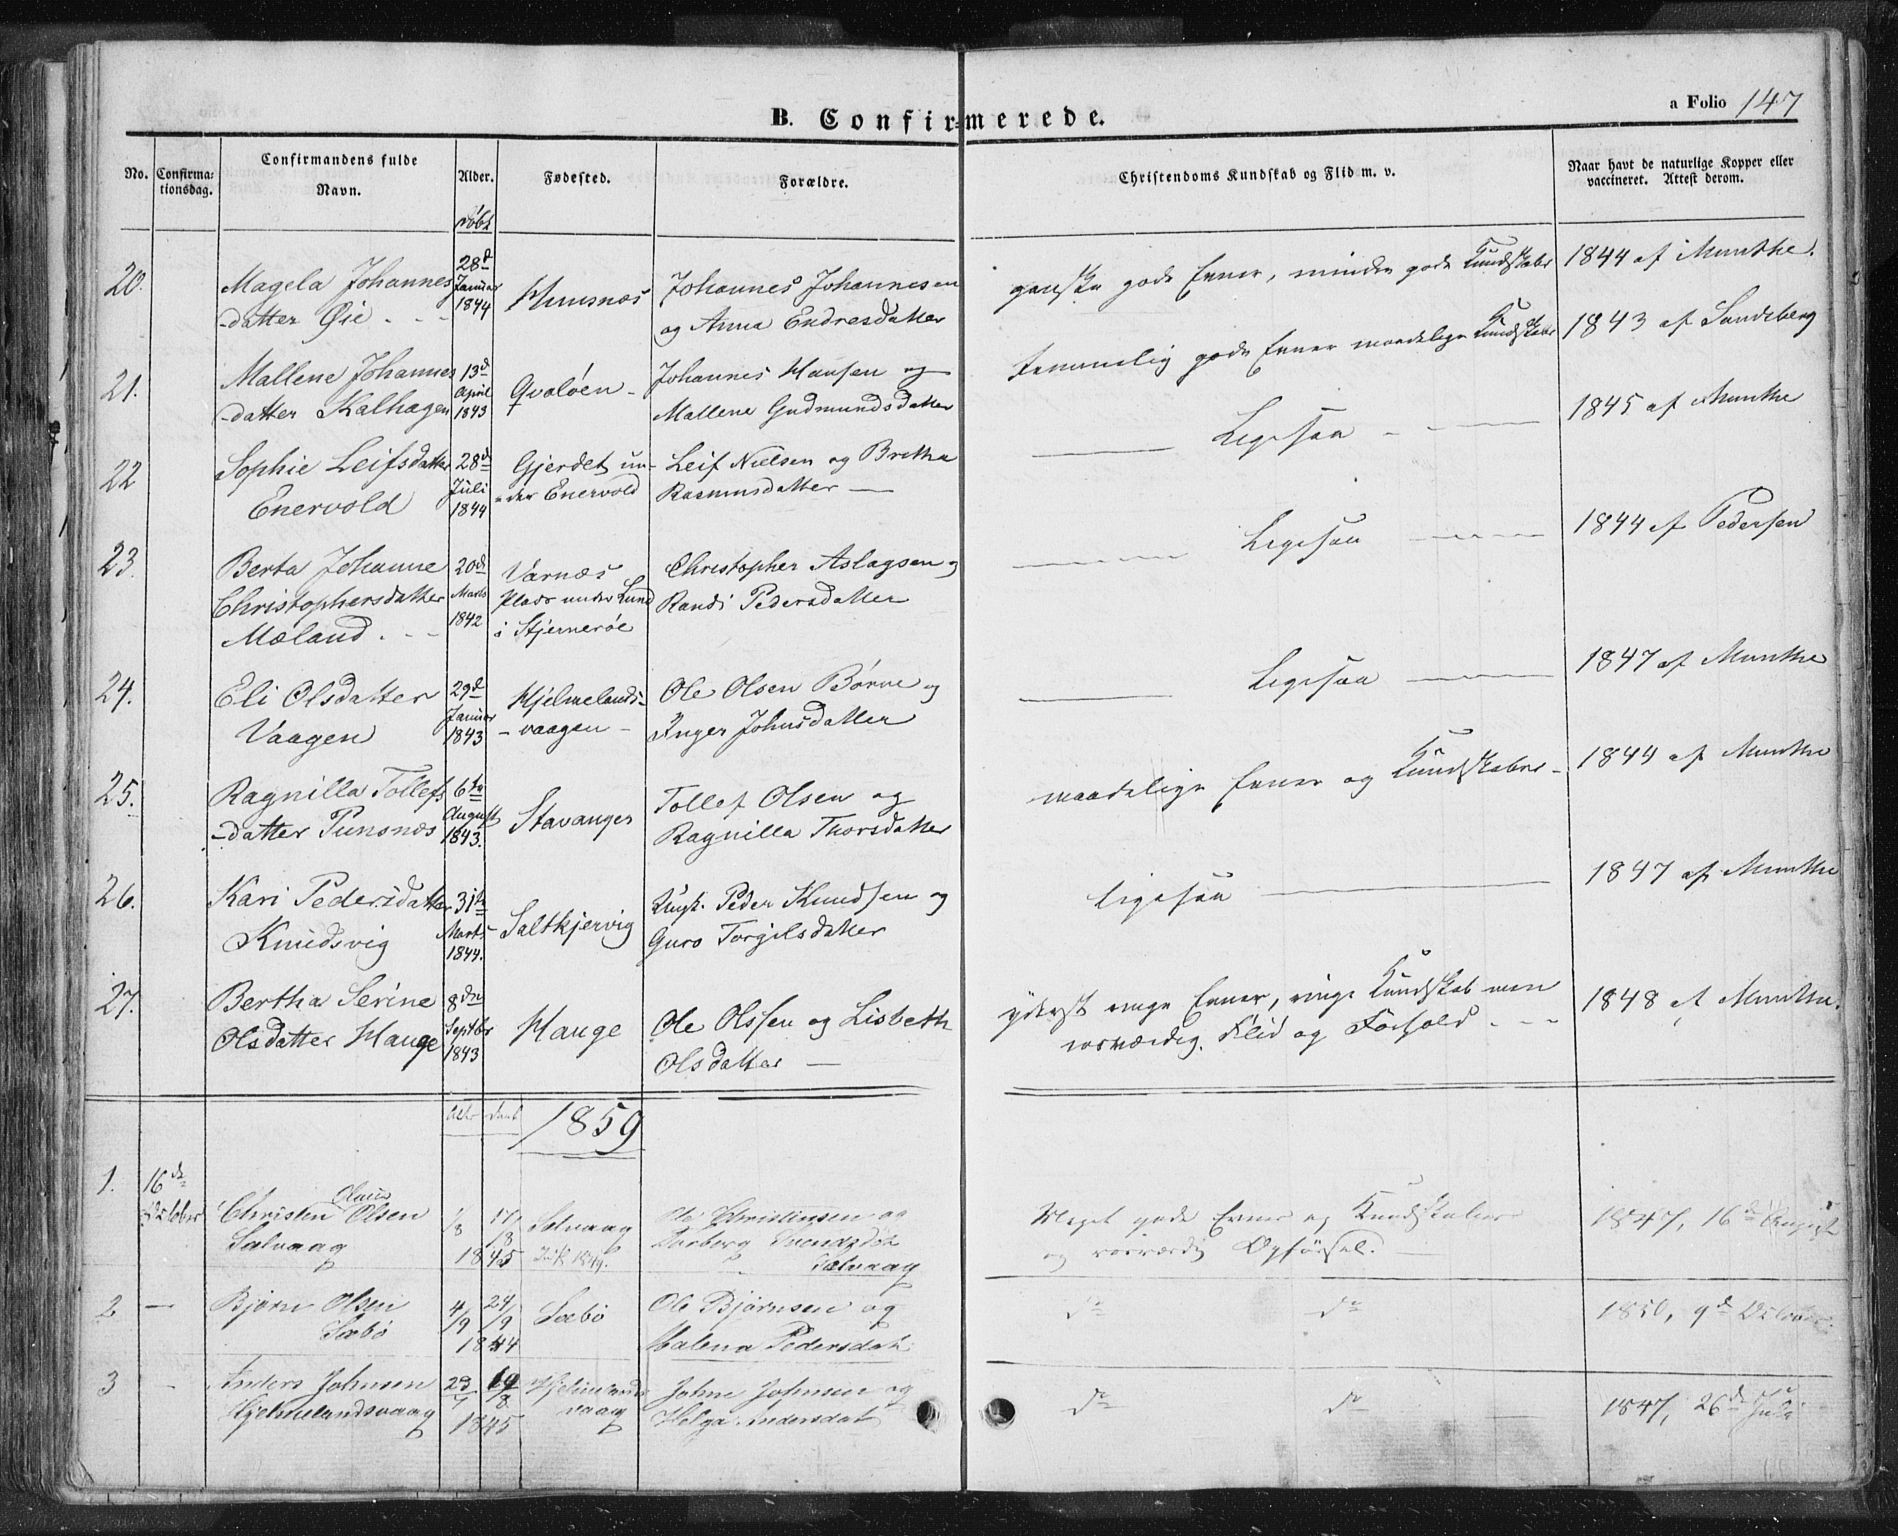 B. Confirmerede.
a Folio 147
No.
Confirma-
tionsdag.
Confirmandens fulde
Navn.
Alder.
Fødested.
Forældre.
Christendoms Kundskab og Flid m. v.
Naar havt de naturlige Kopper eller
vaccineret. Attest derom.
døbt
20.
Magela Johannes
-datter Øie
28d
Januar
1844
Huusnæs
Johannes Johannesen
og Anna Endresdatter
ganske gode Evner, mindre gode Kundskaber
1844 af Munthe.
21.
Mallene Johannes
-datter Kalhagen
13d
April
1843
Qvaløen
Johannes Hansen og
Mallene Gudmundsdatter
temmelig gode Evner maadelige Kundskaber
1843 af Sandeberg
22
Sophie Leifsdatter
Enervold
28d
Juli
1844
Gjerdet un-
-der Enervold
Leif Nielsen og Bretha
Rasmusdatter
Ligesaa
1845 af Munthe
23.
Berta Johanne
Christophersdatter
Mæland
20d
Marts
1842
Varnæs
Plads under Lund
i Stjernerøe
Christopher Aslagsen og
Randi Pedersdatter
Ligesaa
1844 af Pedersen
24.
Eli Olsdatter
Vaagen
29d
Januar
1843
Hjelmelands-
-vaagen
Ole Olsen Børne og
Inger Johnsdatter
Ligesaa
1847 af Munthe
25.
Ragnilla Tollefs
-datter Punsnæs
6te
August
1843.
Stavanger
Tollef Olsen og
Ragnilla Thorsdatter
maadelige Evner og Kundskaber
1844 af Munthe
26.
Kari Pedersdatter
Knudsvig
31te
Marts
1844.
Saltkjervig
Ungk. Peder Knudsen og
Guro Torgilsdatter
ligesaa
1847 af Munthe
27.
Bertha Serine
Olsdatter Hauge
8de
Septbr
1843
Hauge
Ole Olssen og Lisbeth
Olsdatter
yderst ringe Evner, ringe Kundskab men
rosværdig Flid og Forhold
1848 af Munthe.
1859
1.
16de
October
Olaus
Christen Olsen
Sælvaag
1/8
17/8
1845
Sælvaag
Ole Christensen og
Svendsdt
Sælvaag
Meget gode Evner og Kundskaber
og rosværdig Opførsel.
1847, 16de August
2
Bjørn Olsen
Sæbø
4/9
24/9
1844
Sæbø
Ole Bjørnsen og
Malena Pedersdat
do
do
1850, 9de October
3
Anders Johnsen
Hjelmelandsvaag
23/7
10/8
1845
Hjelmelands
vaag
Johne Johnsen og
Helga Andersdat
do
do
1847, 26de Juli